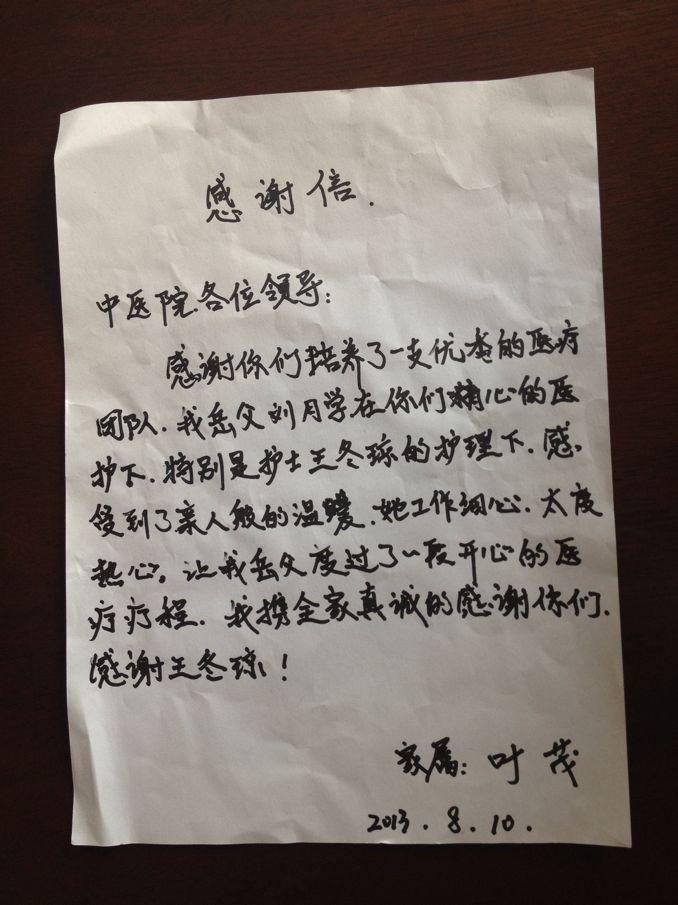 感谢信.
中医院各位领导:
感谢你们培养了一支优秀的医疗
团队.我岳父刘月学在你们精心的医
护下.特别是护士王冬琼的护理下.感
受到了亲人般的温暖.她工作细心.太度
热心。让我岳父度过了一段开心的医
疗疗程.我携全家真诚的感谢你们.
感谢王冬琼!
家属:叶茂
2013.8.10.